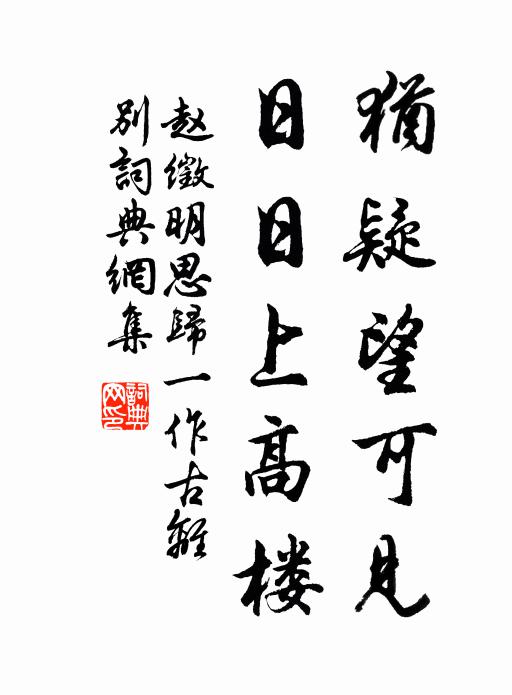 猶疑望可見
日日上高楼
赵徵明思歸一作古離
别詞典網集
詞典网印